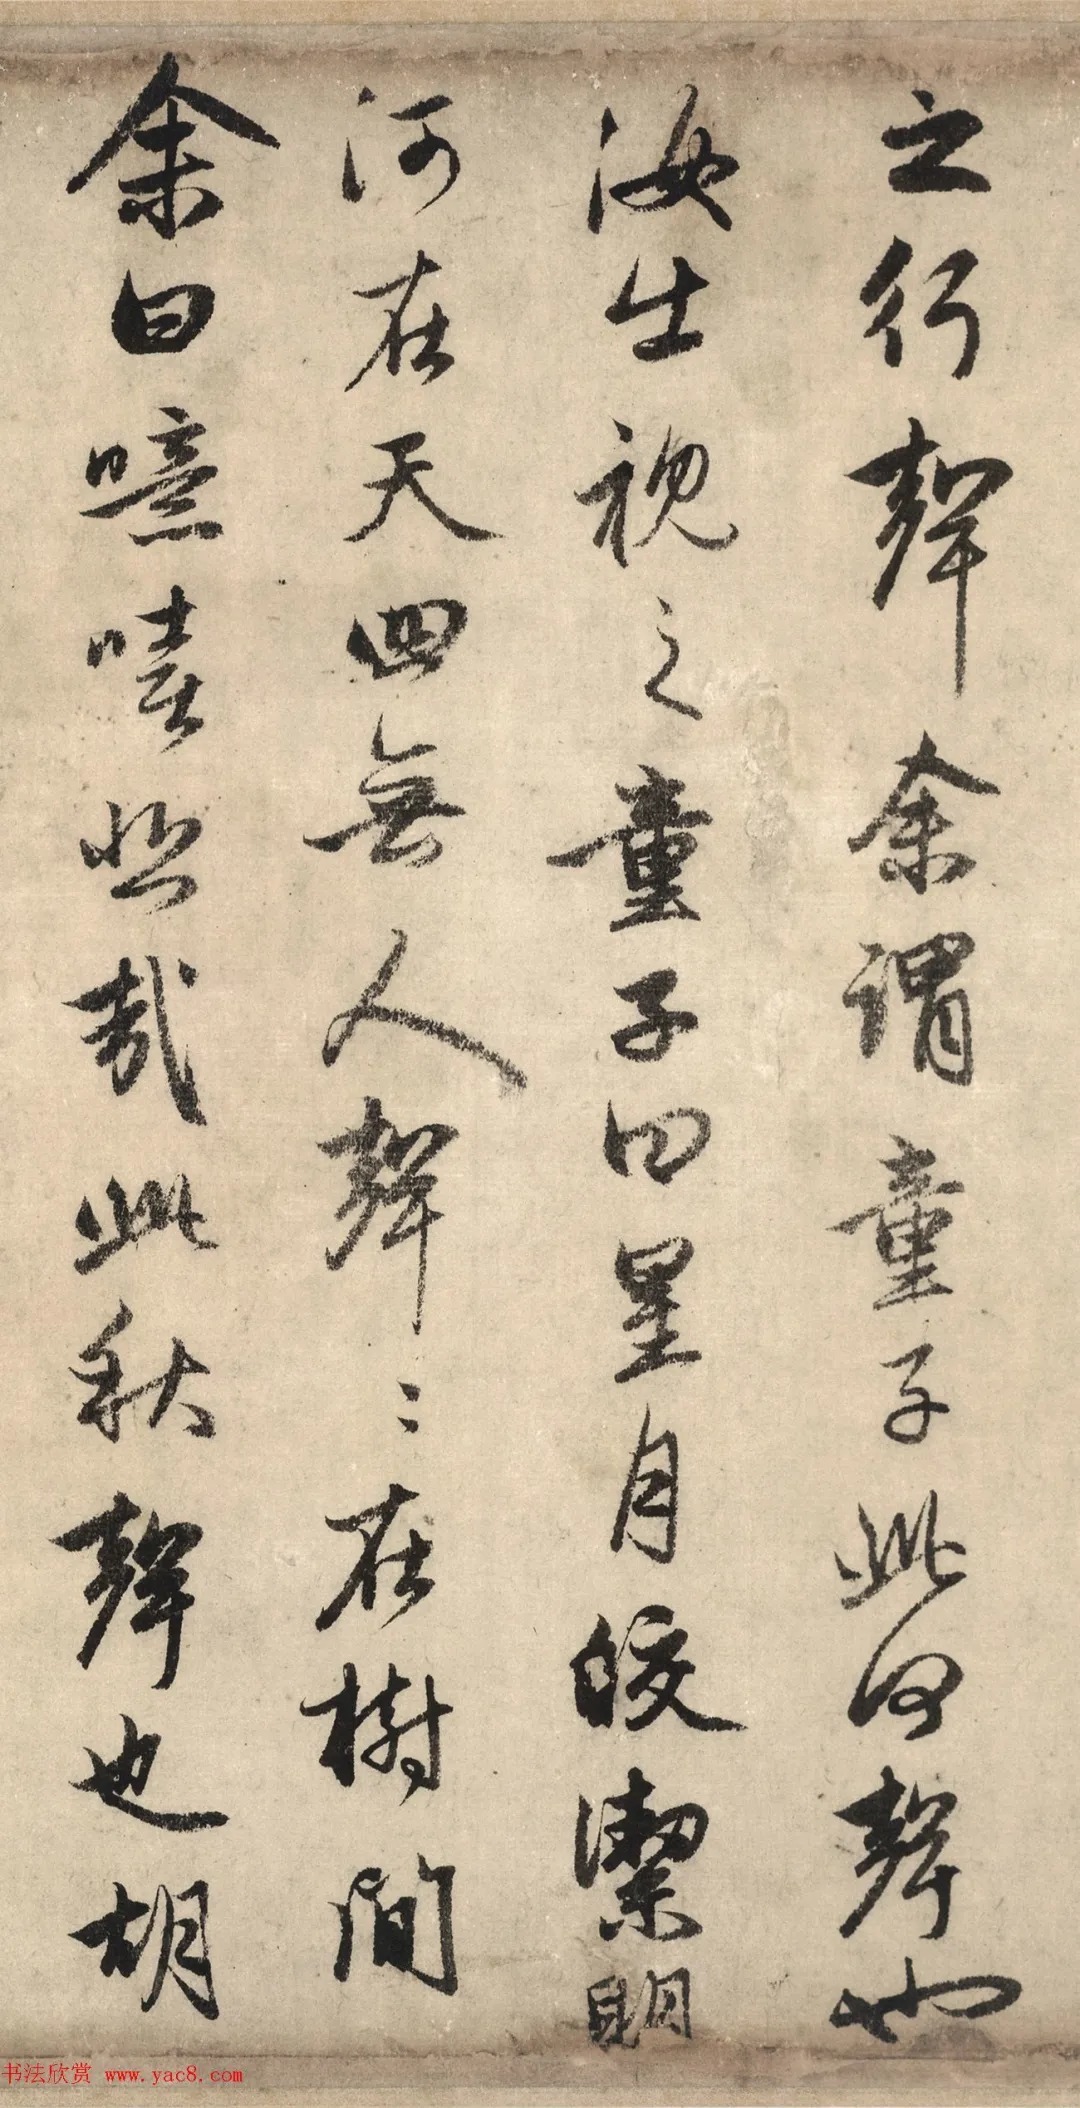 之行聲余謂童子此何聲也
汝出視之童子曰星月皎潔明
河在天四無人聲〻在樹間
余曰噫嘻悲哉此秋聲也胡
书法欣赏 www.yac8.com